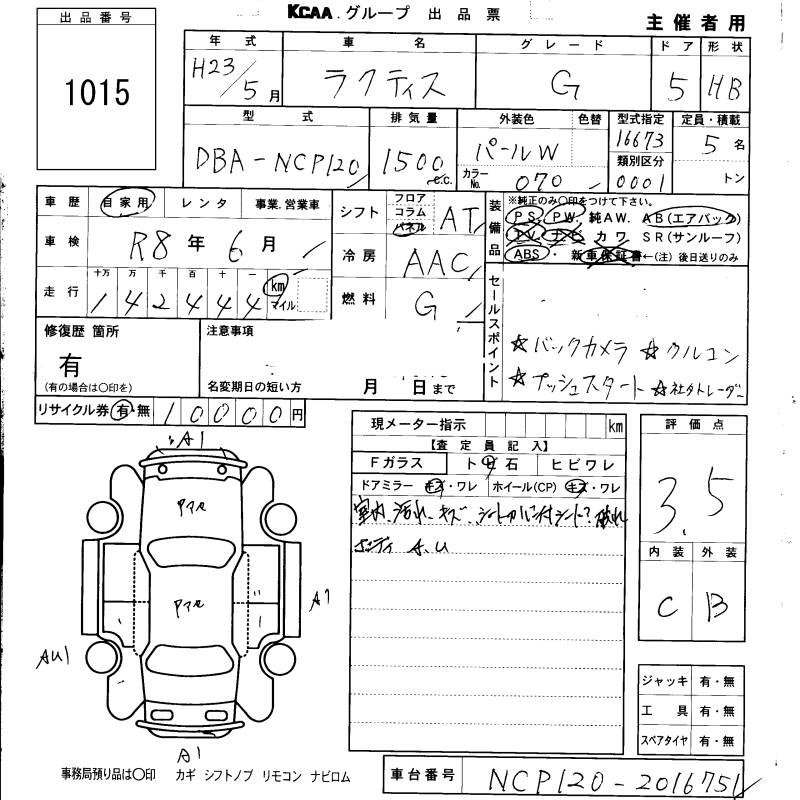 KCAA グループ 出品票
主催者用
出品番号
1015
年式 車名 グレード ドア 形状
H23/5月 ラクティス G 5 HB
型式 排気量 外装色 色替 型式指定 定員・積載
DBA-NCP120 1500 c.c. パールW 16673 5名
カラーNo. 070 類別区分 0001 トン
車歴 自家用 レンタ 事業.営業車
シフト フロア コラム パネル AT
装備品 ※純正のみ〇印をつけて下さい。
PS PW 純AW. AB(エアバック)
カワ SR(サンルーフ)
ABS・新車保証書←(注)後日送りのみ
車検 R8年6月
冷房 AAC
走行 十万 万 千 百 十 一
142444 km マイル
燃料 G
セールスポイント
☆バックカメラ ☆クルコン
☆プッシュスタート ☆社外レーダー
修復歴 箇所 注意事項
有
(有の場合は〇印を) 名変期日の短い方 月 日まで
リサイクル券 有・無 10000円
現メーター指示 km
【査定員記入】
Fガラス ト ビ 石 ヒビワレ
ドアミラー キズ・ワレ ホイール(CP) キズ・ワレ
室内、汚れ、キズ、
ボディ A.U
評価点
3.5
内装 外装
C B
A1
アマル
アマル
A1
AU1
A1
ジャッキ 有・無
工具 有・無
スペアタイヤ 有・無
事務局預り品は〇印 カギ シフトノブ リモコン ナビロム
車台番号 NCP120-2016751